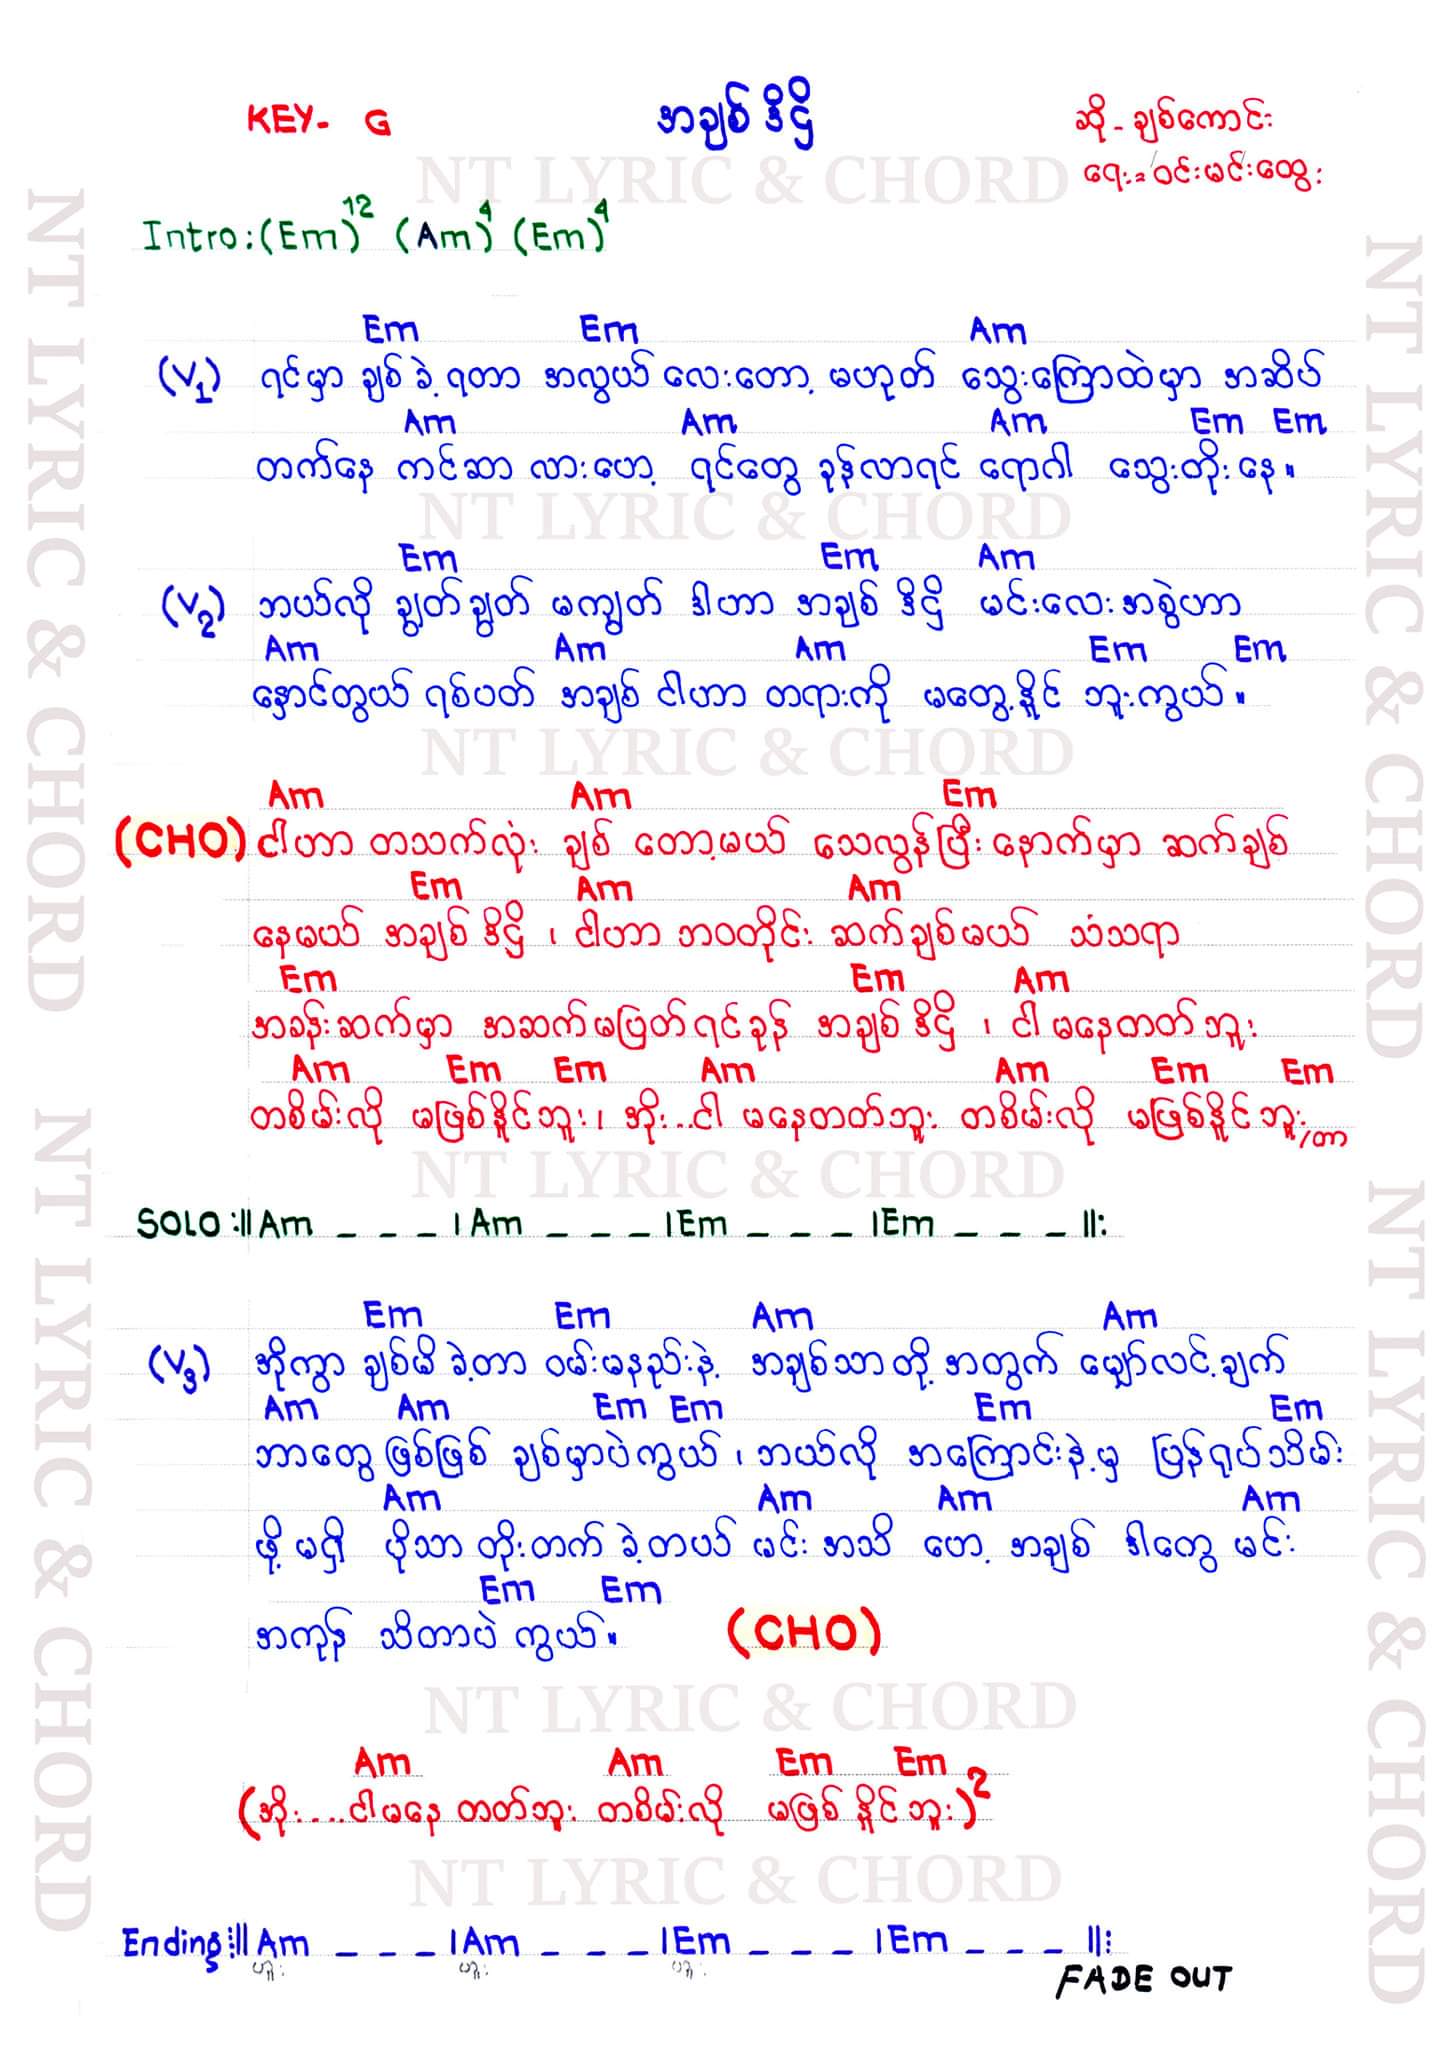 KEY- G
အချစ်ဒိဋ္ဌိ
ဆို - ချစ်ကောင်း
ရေး = ဝင်းမင်းထွေး
NT LYRIC & CHORD
Intro: (Em)12 (Am)4 (Em)4
Em Em Am
(V1) ရင်မှာ ချစ်ခဲ့ရတာ အလွယ်လေးတော့ မဟုတ် သွေးကြောထဲမှာ အဆိပ်
Am Am Am Em Em
တက်နေ ကင်ဆာလားဟေ့ ရင်တွေ ခုန်လာရင် ရောဂါ သွေးတိုးနေ။
NT LYRIC & CHORD
Em Em Am
(V2) ဘယ်လို ချွတ်ချွတ် မကျွတ် ဒါဟာ အချစ်ဒိဋ္ဌိ မင်းလေးအစွဲဟာ
Am Am Am Em Em
နှောင်တွယ် ရစ်ပတ် အချစ် ငါဟာ တရားကို မတွေ့နိုင် ဘူးကွယ်။
NT LYRIC & CHORD
Am Am Em
(CHO) ငါဟာ တသက်လုံး ချစ် တော့မယ် သေလွန်ပြီးနောက်မှာ ဆက်ချစ်
Em Am Am
နေမယ် အချစ်ဒိဋ္ဌိ ၊ ငါဟာ ဘဝတိုင်း ဆက်ချစ်မယ် သံသရာ
Em Em Am
အခန်းဆက်မှာ အဆက်မပြတ်ရင်ခုန် အချစ်ဒိဋ္ဌိ ၊ ငါ မနေတတ်ဘူး
Am Em Em Am Am Em Em
တစိမ်းလို မဖြစ်နိုင်ဘူး၊ အိုး...ငါ မနေတတ်ဘူး တစိမ်းလို မဖြစ်နိုင်ဘူး/တာ
NT LYRIC & CHORD
SOLO :||Am _ _ _ |Am _ _ _ |Em _ _ _ |Em _ _ _ ||:
Em Em Am Am
(V3) အိုကွာ ချစ်မိခဲ့တာ ဝမ်းမနည်းနဲ့ အချစ်သာတို့အတွက် မျှော်လင့်ချက်
Am Am Em Em Em Em
ဘာတွေ ဖြစ်ဖြစ် ချစ်မှာပဲကွယ် ၊ ဘယ်လို အကြောင်းနဲ့မှ ပြန်ရုပ်သိမ်း
Am Am Am Am
ဖို့မရှိ ပိုသာ တိုးတက်ခဲ့တယ် မင်းအသိ ဟေ့ အချစ် ဒါတွေ မင်း
Em Em
အကုန် သိတာပဲ ကွယ်။ (CHO)
NT LYRIC & CHORD
Am Am Em Em
(အိုး....ငါမနေ တတ်ဘူး တစိမ်းလို မဖြစ်နိုင်ဘူး)2
NT LYRIC & CHORD
Ending :||Am _ _ _ |Am _ _ _ |Em _ _ _ |Em _ _ _ ||:
FADE OUT
NT LYRIC & CHORD
NT LYRIC & CHORD
NT LYRIC & CHORD
NT LYRIC & CHORD